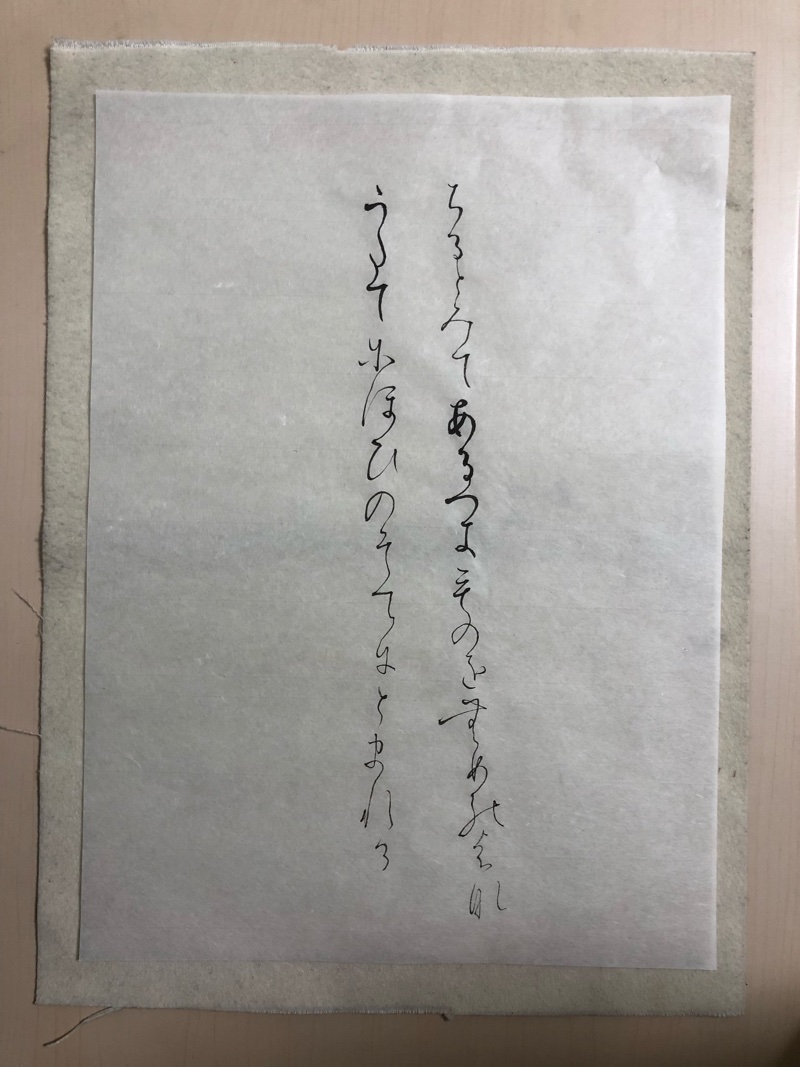 ちるとみてあるへきものをむめのはな
うたてにほひのそてにとまれる